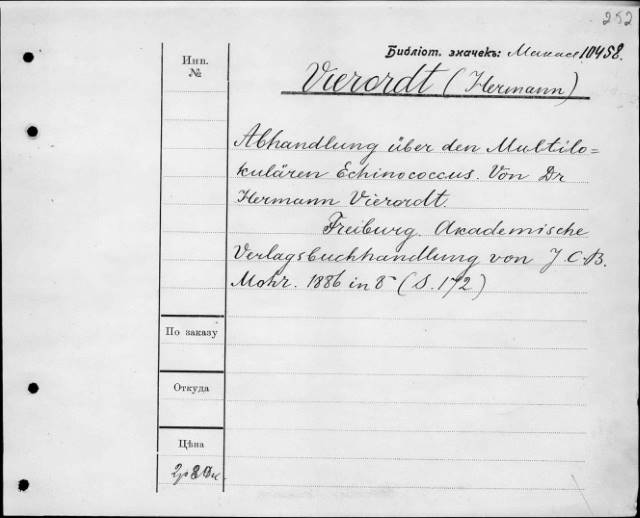 252
Библіот. значекъ: 10458.
Инв.
№
Vierordt (Hermann)
Abhandlung über den Multilo=
kulären Echinococcus. Von Dr
Hermann Vierordt.
Freiburg. Akademische
Verlagsbuchhandlung von J. C. B.
Mohr. 1886 in 8° (S. 172)
По заказу
Откуда
Цѣна
2р 80к.